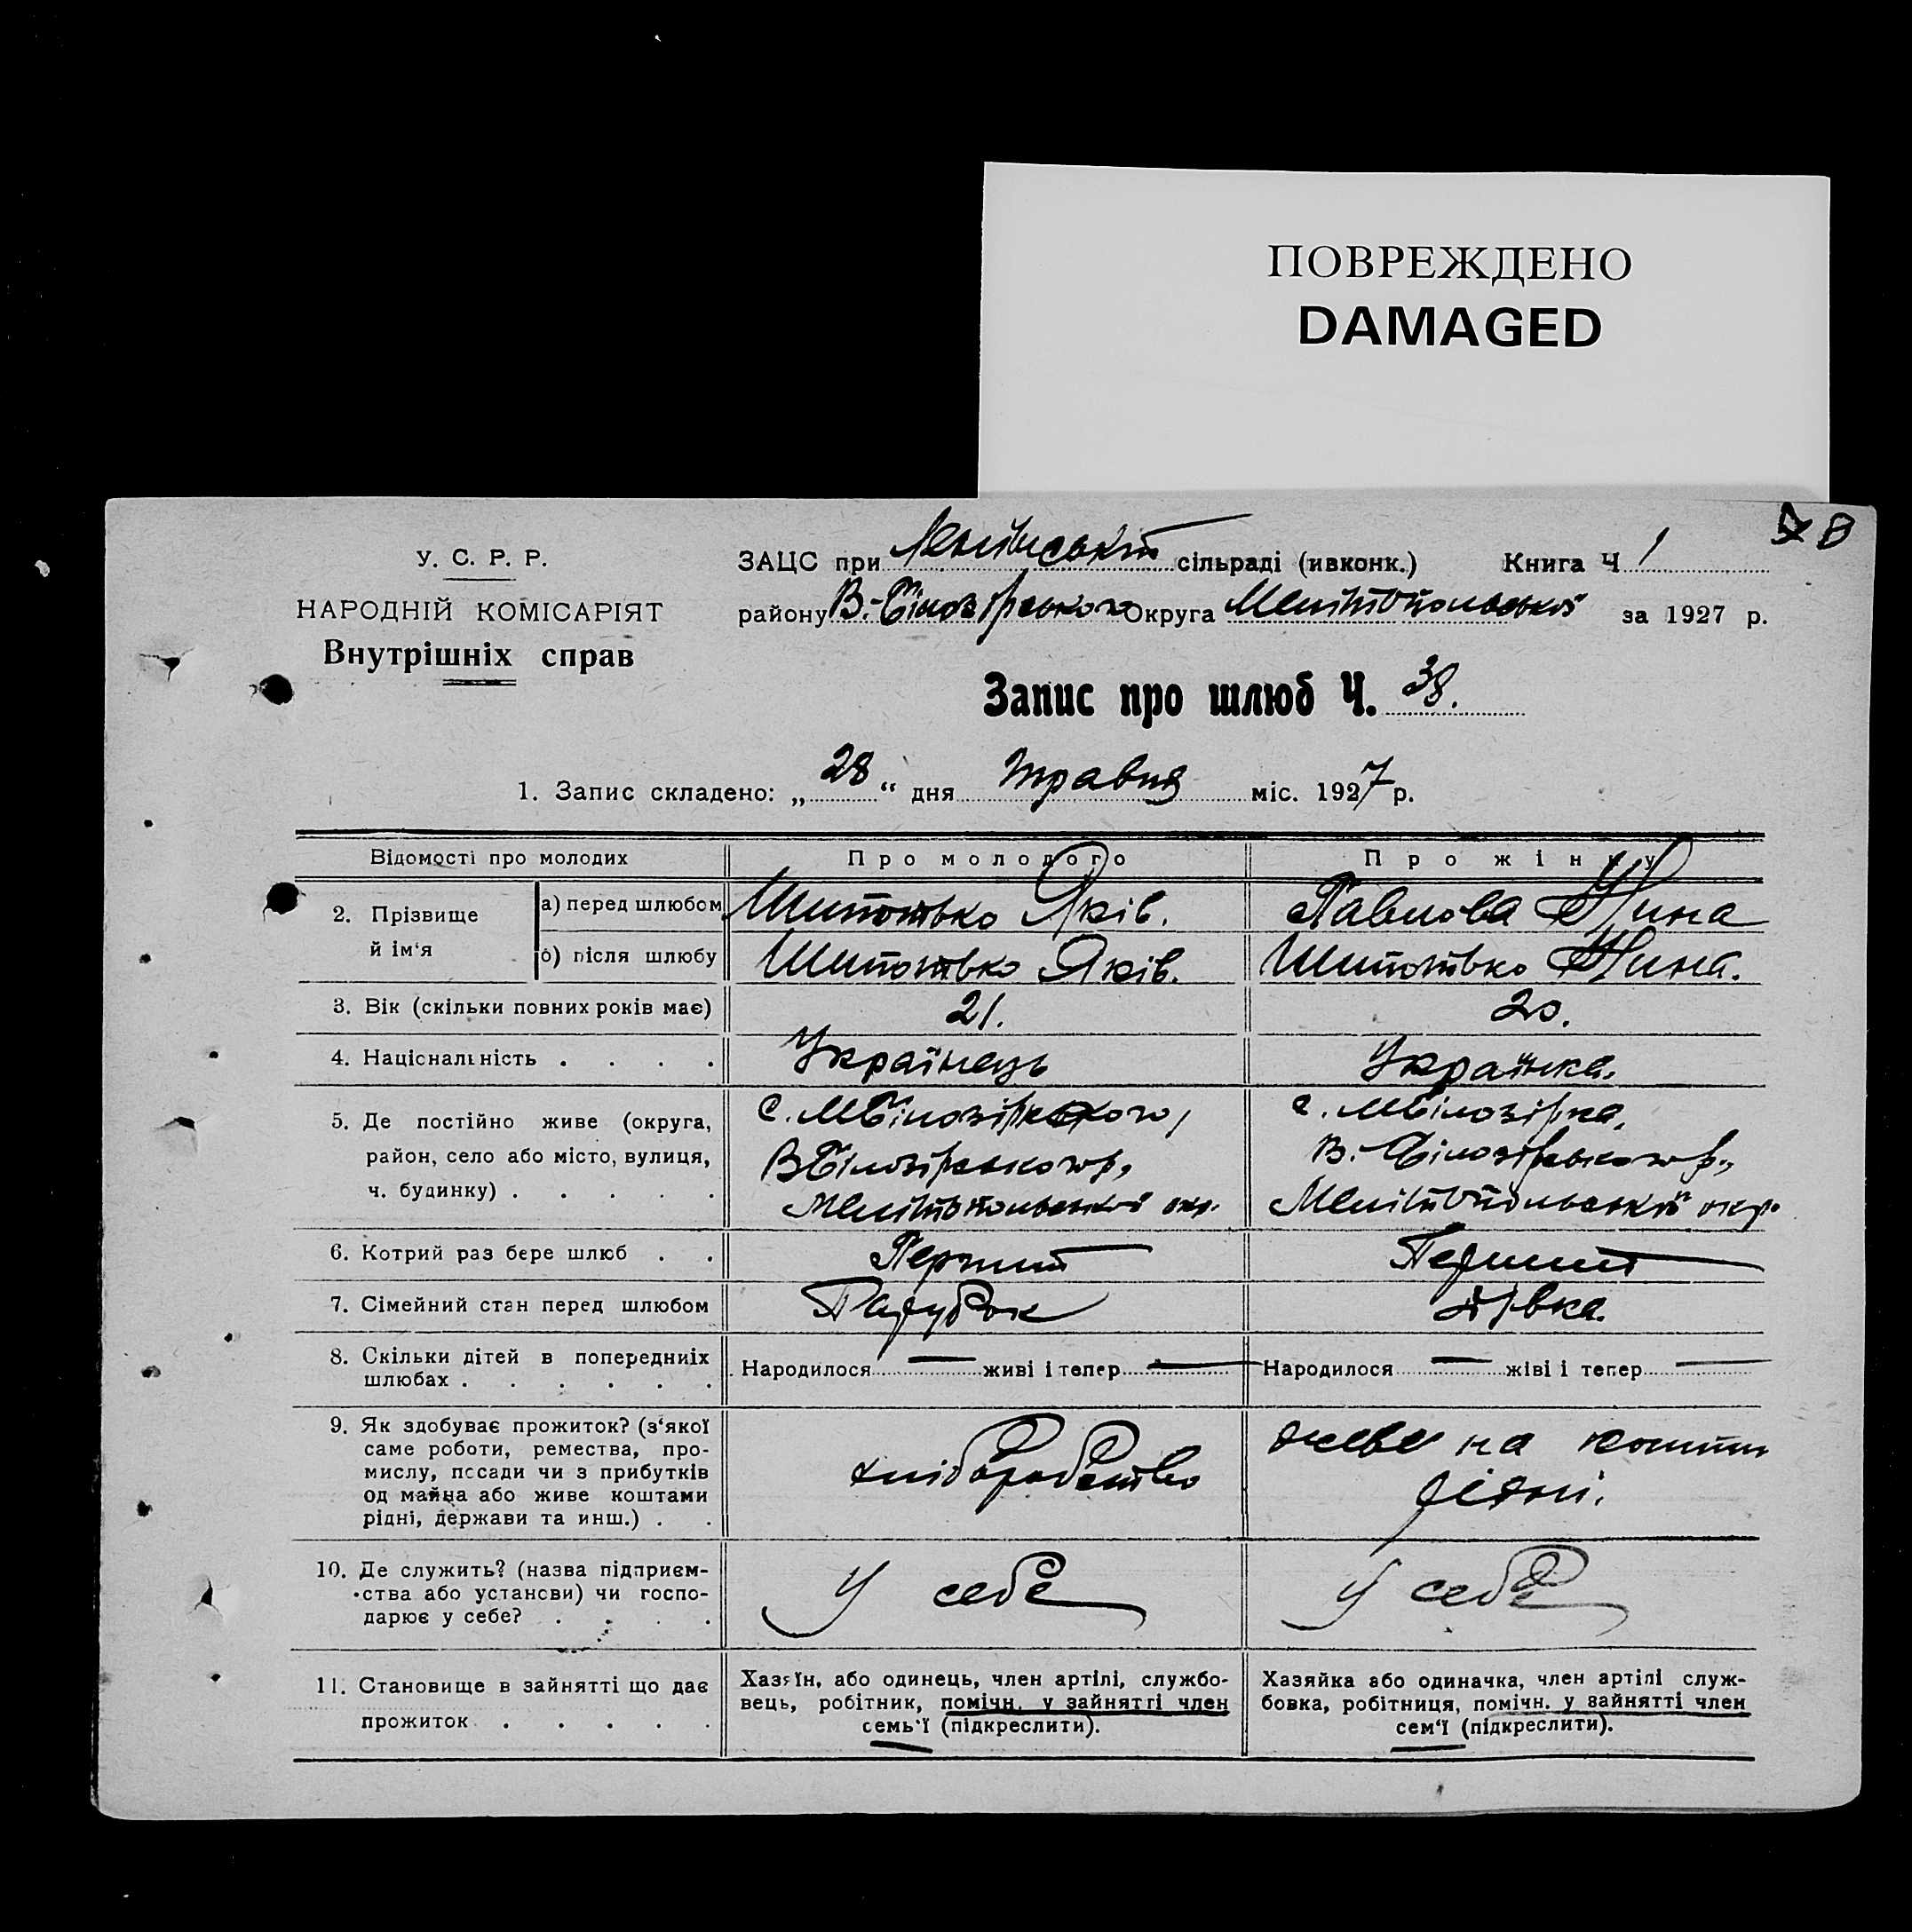 ПОВРЕЖДЕНО
DAMAGED
У. С. Р. Р.
НАРОДНІЙ КОМІСАРІЯТ
Внутрішніх справ
ЗАЦС при Ленінській сільраді (ивконк.) Книга Ч 1
району В.-Білозірського Округа Мелітопольської за 1927 р.
Запис про шлюб Ч. 38.
1. Запис складено: „ 28 “ дня травня міс. 1927 р.
Відомості про молодих Про молодого Про жінку
2. Прізвище й ім‘я
а) перед шлюбом Шипотько Яків. Павлова Нина
б) після шлюбу Шипотько Яків. Шипотько Нина.
3. Вік (скільки повних років має) 21. 20.
4. Національність . . . . Українець Українка.
5. Де постійно живе (округа,
район, село або місто, вулиця,
ч. будинку) . . . . .
с. МБілозірко
ВБілозірського р,
Мелітопольської окр.
с. МБілозірка,
В.-Білозірського р.,
Мелітопольській окр.
6. Котрий раз бере шлюб . . Перший Перший
7. Сімейний стан перед шлюбом Парубок Дівка.
8. Скільки дітей в попередниіх
шлюбах . . . . . .
Народилося — живі і тепер —
Народилося — жіві і тепер —
9. Як здобуває прожиток? (з‘якої
саме роботи, ремества, про-
мислу, посади чи з прибутків
од майна або живе коштами
рідні, держави та инш.) . .
хліборобство
живе на кошти
рідні.
10. Де служить? (назва підприєм-
ства або установи) чи госпо-
дарює у себе? . . . .
У себе
У себе
11. Становище в зайнятті що дає
прожиток . . . . .
Хазяїн, або одинець, член артілі, службо-
вець, робітник, помічн. у зайнятті член
семь‘ї (підкреслити).
Хазяйка або одиначка, член артілі служ-
бовка, робітниця, помічн. у зайнятті член
сем‘ї (підкреслити).